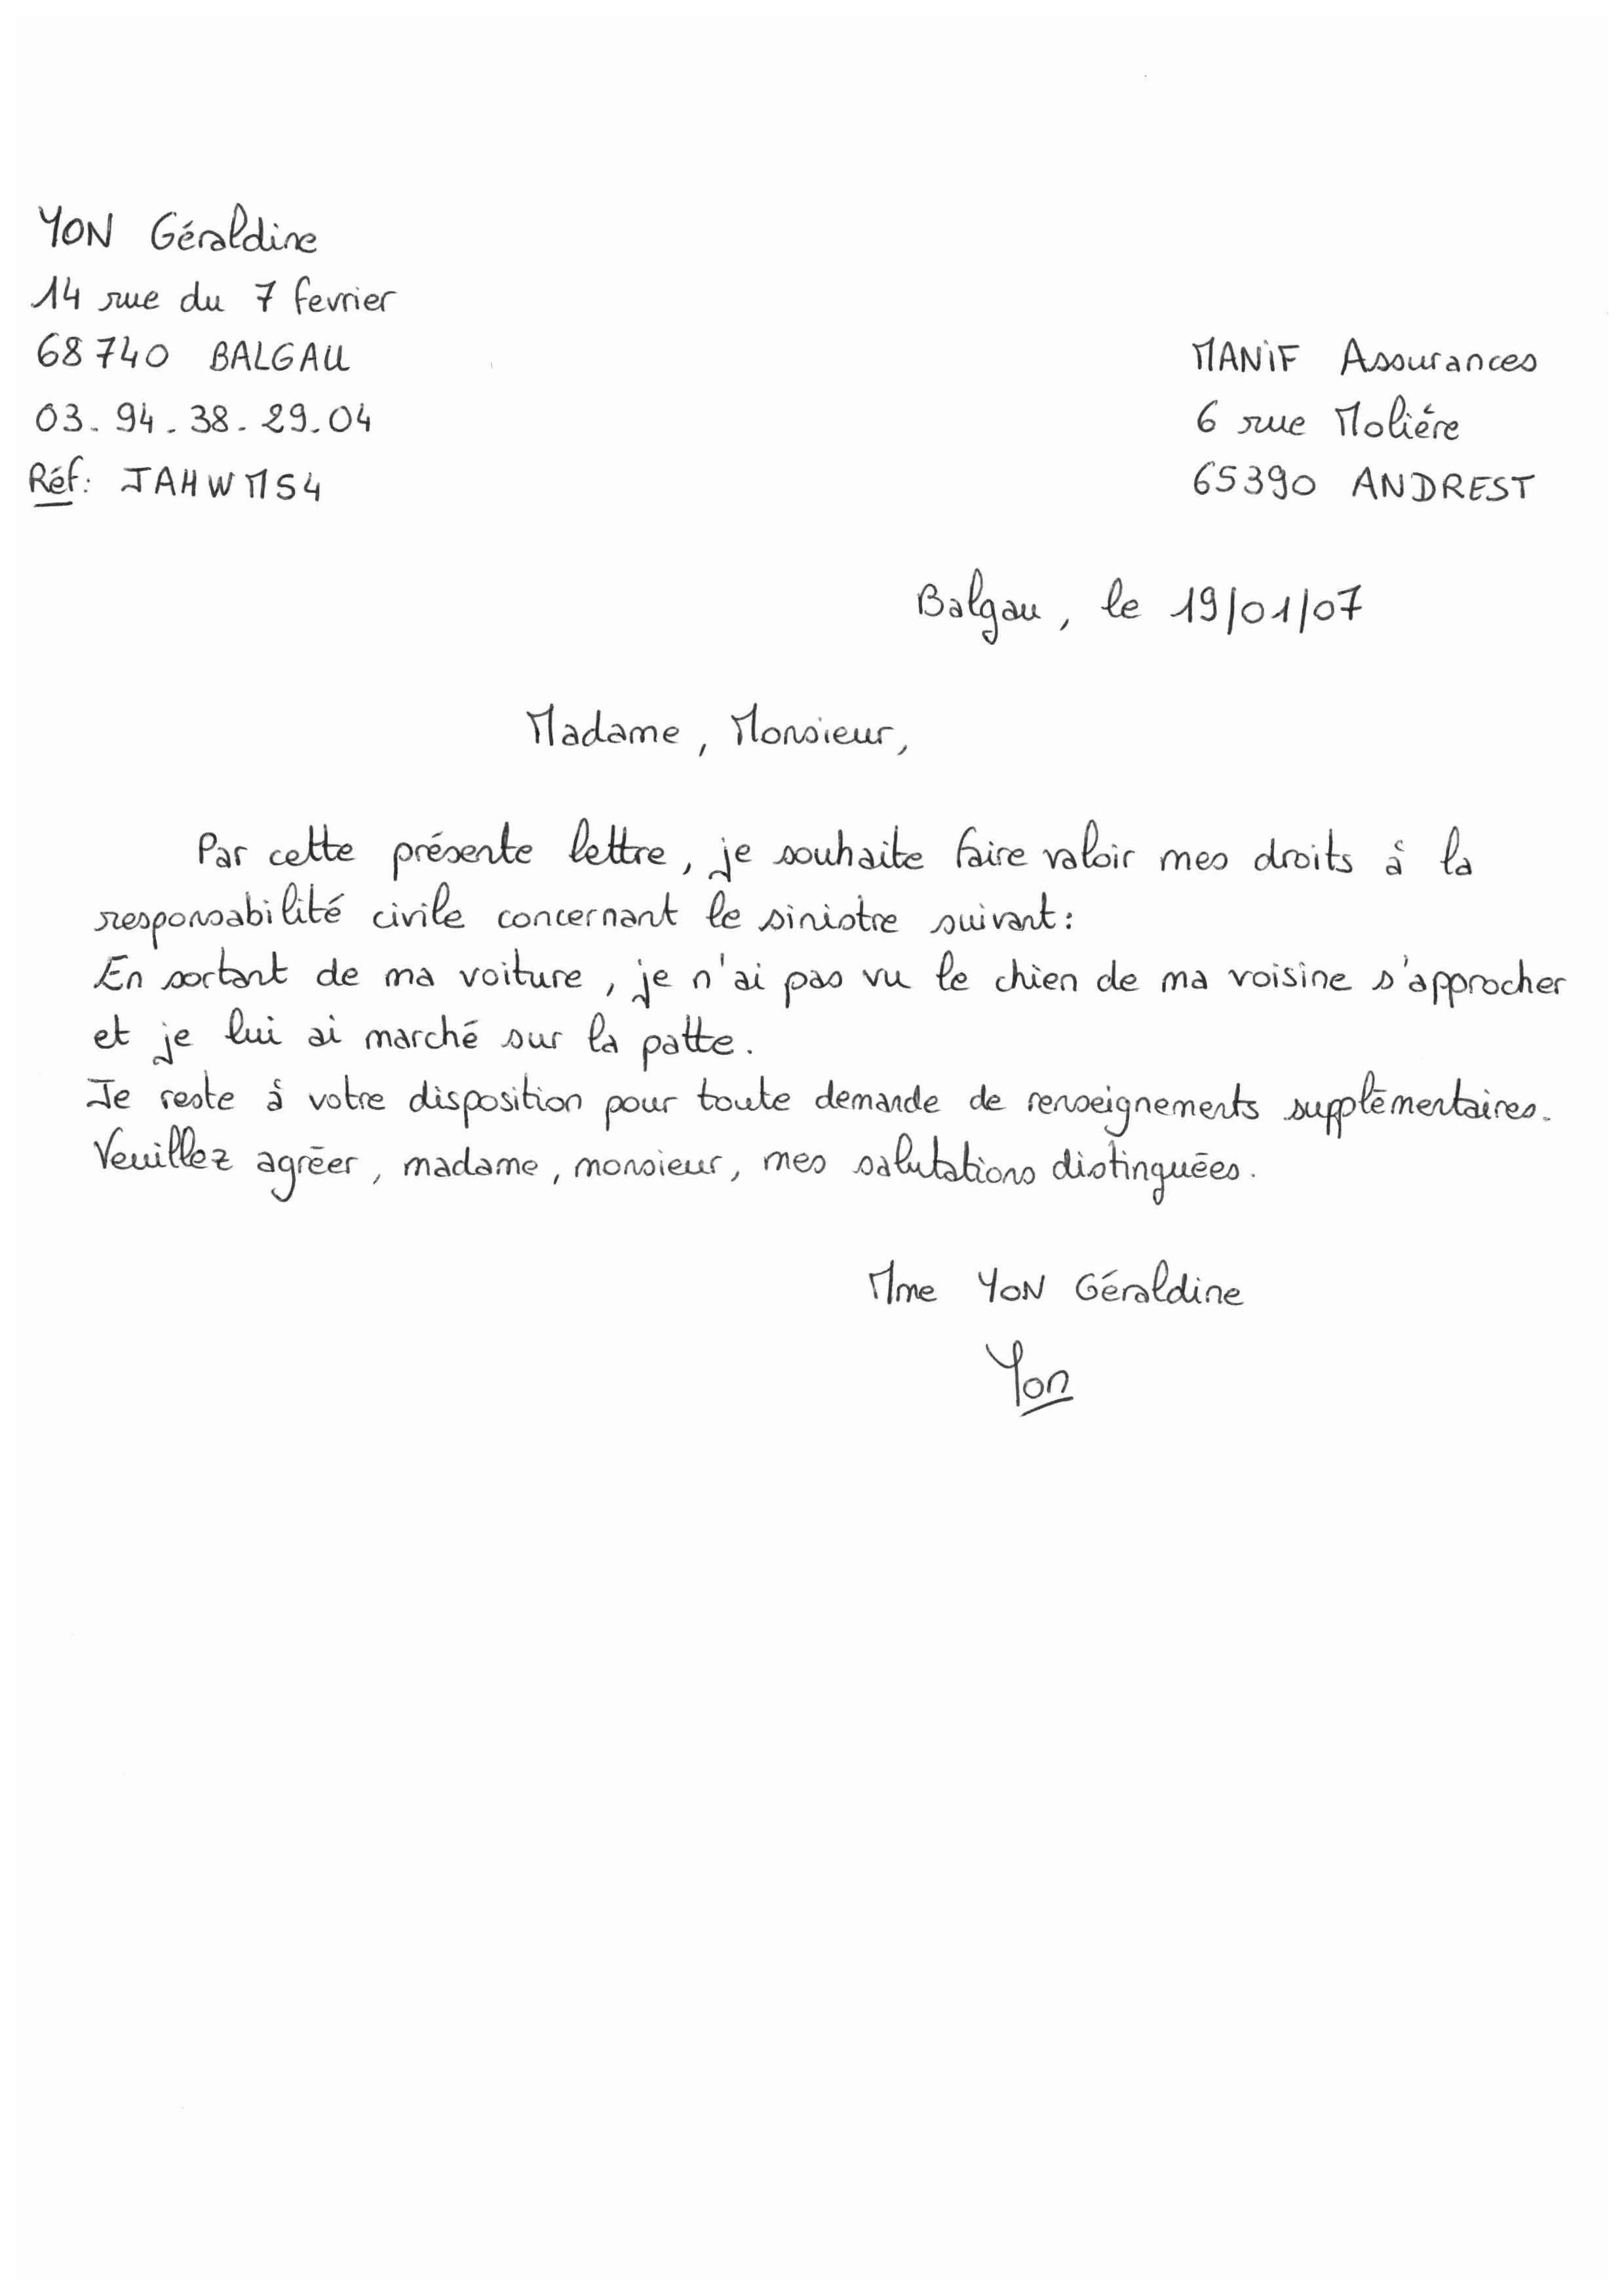 YON Géraldine
14 rue du 7 fevrier
68740 BALGAU
03.94.38.29.04
Réf: JAHWMS4
MANIF Assurances
6 rue Molière
65390 ANDREST
Balgau, le 19/01/07
Madame, Monsieur,
Par cette présente lettre, je souhaite faire valoir mes droits à la
responsabilité civile concernant le sinistre suivant:
En sortant de ma voiture, je n'ai pas vu le chien de ma voisine s'approcher
et je lui ai marché sur la patte.
Je reste à votre disposition pour toute demande de renseignements supplémentaires.
Veuillez agréer, madame, monsieur, mes salutations distinguées.
Mme YON Géraldine
Yon